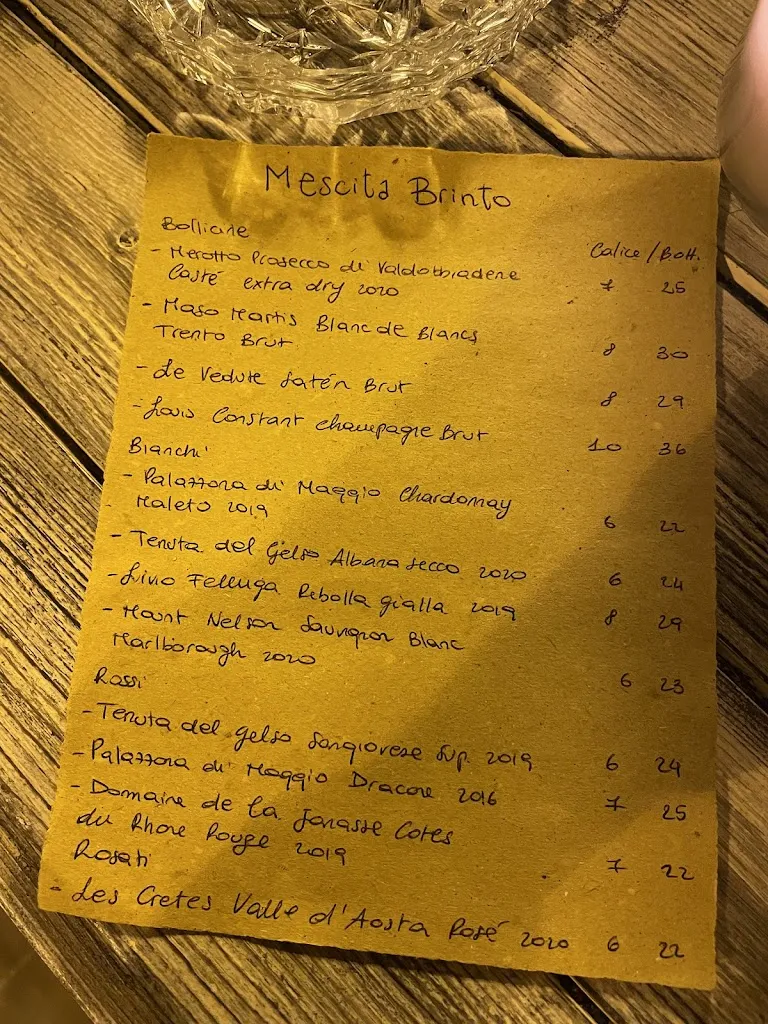 Mescita Brinto
Bollicine
Calice / Bott.
- Merotto Prosecco di Valdobbiadene
Casté extra dry 2020 7 25
- Maso Martis Blanc de Blancs
Trento Brut 8 30
- Le Vedute Satén Brut 8 29
- Louis Constant Champagne Brut 10 36
Bianchi
- Palazzona di Maggio Chardonnay
Maleto 2019 6 22
- Tenuta del Gelso Albana secco 2020 6 24
- Livio Felluga Ribolla gialla 2019 8 29
- Mount Nelson Sauvignon Blanc
Marlborough 2020 6 23
Rossi
- Tenuta del gelso Sangiovese Sup. 2019 6 24
- Palazzona di Maggio Dracone 2016 7 25
- Domaine de la Janasse Cotes
du Rhone Rouge 2019 7 22
Rosati
- Les Cretes Valle d'Aosta Rosé 2020 6 22